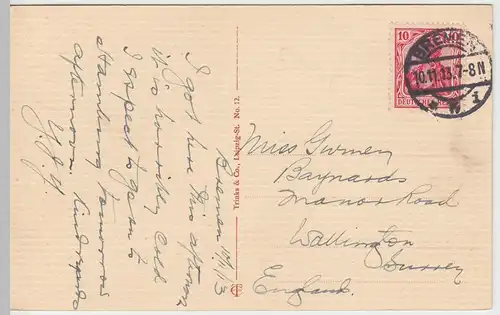 Bremen 10/11/13
I got here this afternoon,
it is horribly cold
I expect to go on to
Hamburg tomorrow
afternoon. Kind regards
Trinks & Co., Leipzig-St. No. 12.
10
BREMEN
10.11.13.7-8N
1
Miss Gurney
Baynards
Manor Road
Wallington
Surrey
England.